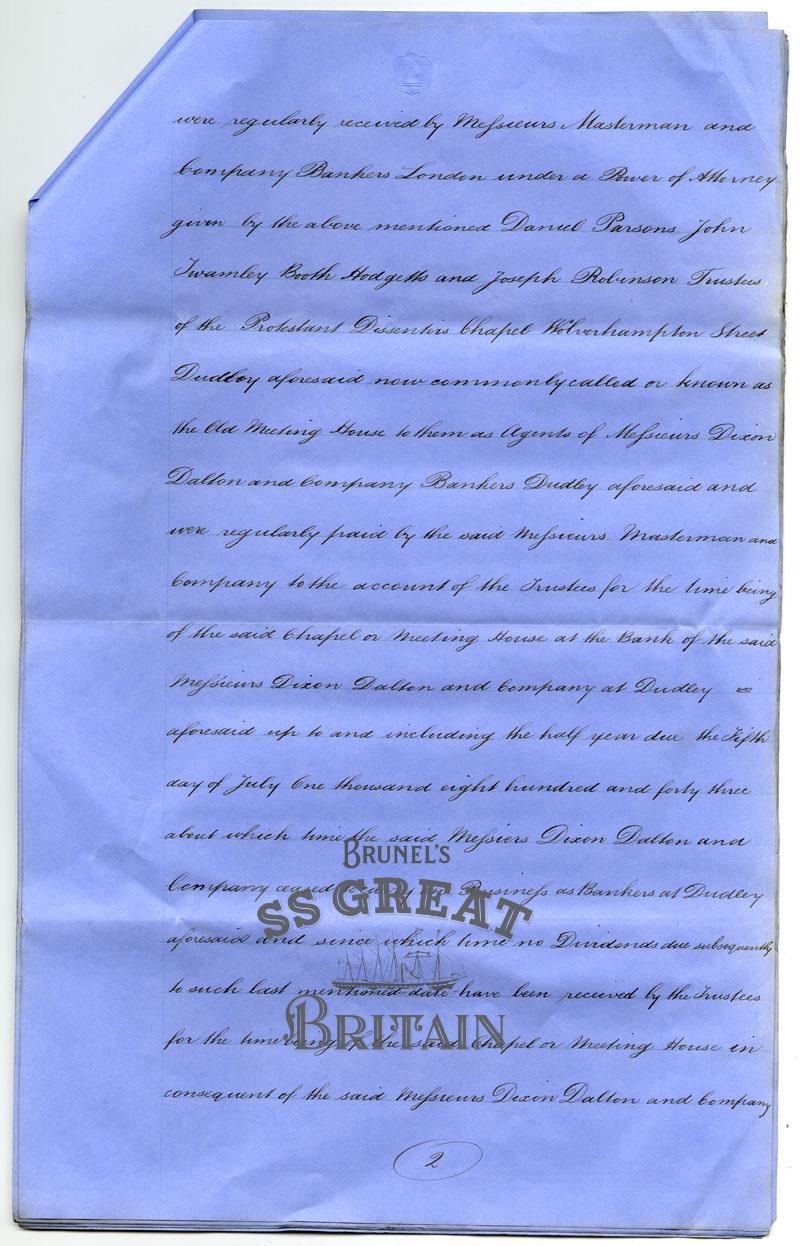 were regularly received by Messieurs Masterman and
Company Bankers London under a Power of Attorney
given by the above mentioned Daniel Parsons John
Twamley Booth Hodgetts and Joseph Robinson Trustees
of the Protestant Dissenters Chapel Wolverhampton Street
Dudley aforesaid now commonly called or known as
the Old Meeting House to them as Agents of Messieurs Dixon
Dalton and Company Bankers Dudley aforesaid and
were regularly paid by the said Messieurs Masterman and
Company to the account of the Trustees for the time being
of the said Chapel or Meeting House at the Bank of the said
Messieurs Dixon Dalton and Company at Dudley
aforesaid up to and including the half year due the Fifth
day of July One thousand eight hundred and forty three
about which time the said Messiers Dixon Dalton and
Company ceased to carry on Business as Bankers at Dudley
aforesaid and since which time no Dividends due subsequently
to such last mentioned date have been received by the Trustees
for the time being of the said Chapel or Meeting House in
consequent of the said Messieurs Dixon Dalton and Company
2
BRUNEL'S
SS GREAT
BRITAIN